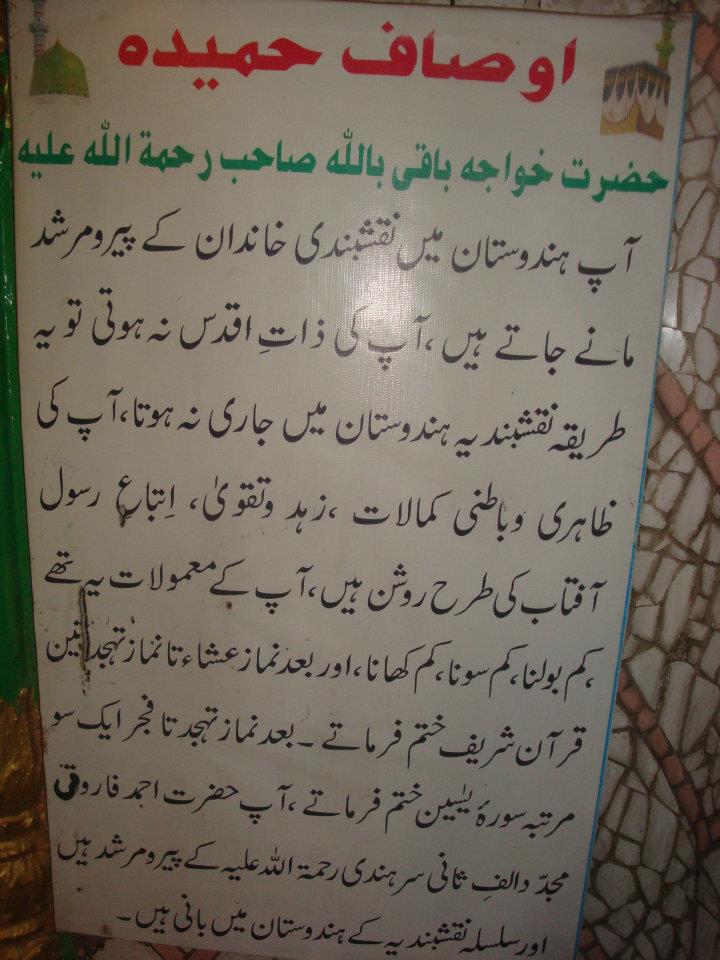 اوصاف حمیدہ
حضرت خواجہ باقی باللہ صاحب رحمۃ اللہ علیہ
آپ ہندوستان میں نقشبندی خاندان کے پیرومرشد
مانے جاتے ہیں،آپ کی ذاتِ اقدس نہ ہوتی تو یہ
طریقہ نقشبندیہ ہندوستان میں جاری نہ ہوتا،آپ کی
ظاہری وباطنی کمالات ،زہد وتقویٰ، اِتباعِ رسول
آفتاب کی طرح روشن ہیں،آپ کے معمولات یہ تھے
،کم بولنا،کم سونا،کم کھانا،اور بعد نماز عشاء تا نماز تہجد
قرآن شریف ختم فرماتے۔بعد نماز تہجد تا فجر ایک سو
مرتبہ سورۂ یٰسین ختم فرماتے ،آپ حضرت احمد فاروقی
مجدّ دالفِ ثانی سرہندی رحمۃ اللہ علیہ کے پیرومرشد ہیں
اور سلسلہ نقشبندیہ کے ہندوستان میں بانی ہیں۔